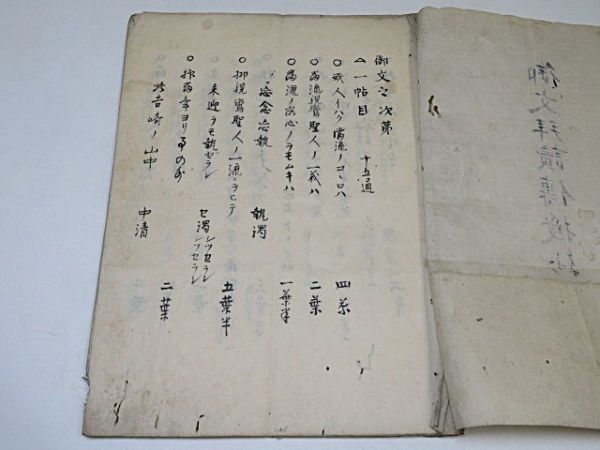 御文拝讀傳授抄
御文之次第
△一帖目 十五通
○或人イハク當流ノコヽロハ 四葉
○當流親鸞聖人ノ一義ハ 二葉
○當流ノ安心ノヲモムキハ 一葉半
忘念忘執 執濁
○御親鸞聖人ノ一流ニヲヒテ 五葉半
来迎ヲモ執セラレ セ濁
シツセラレ
シフセラレ
○抑當年ヨリ
此吉崎ノ山中 中清 二葉